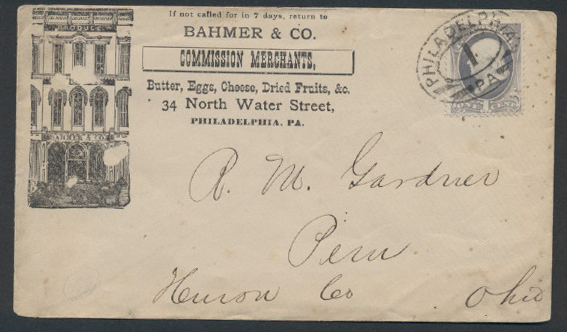 If not called for in 7 days, return to
BAHMER & CO.
COMMISSION MERCHANTS,
Butter, Eggs, Cheese, Dried Fruits, &c.
34 North Water Street,
PHILADELPHIA, PA.
PRODUCE
BAHMER & CO.
PHILADELPHIA
PA
R. M. Gardner
Peru
Huron Co Ohio